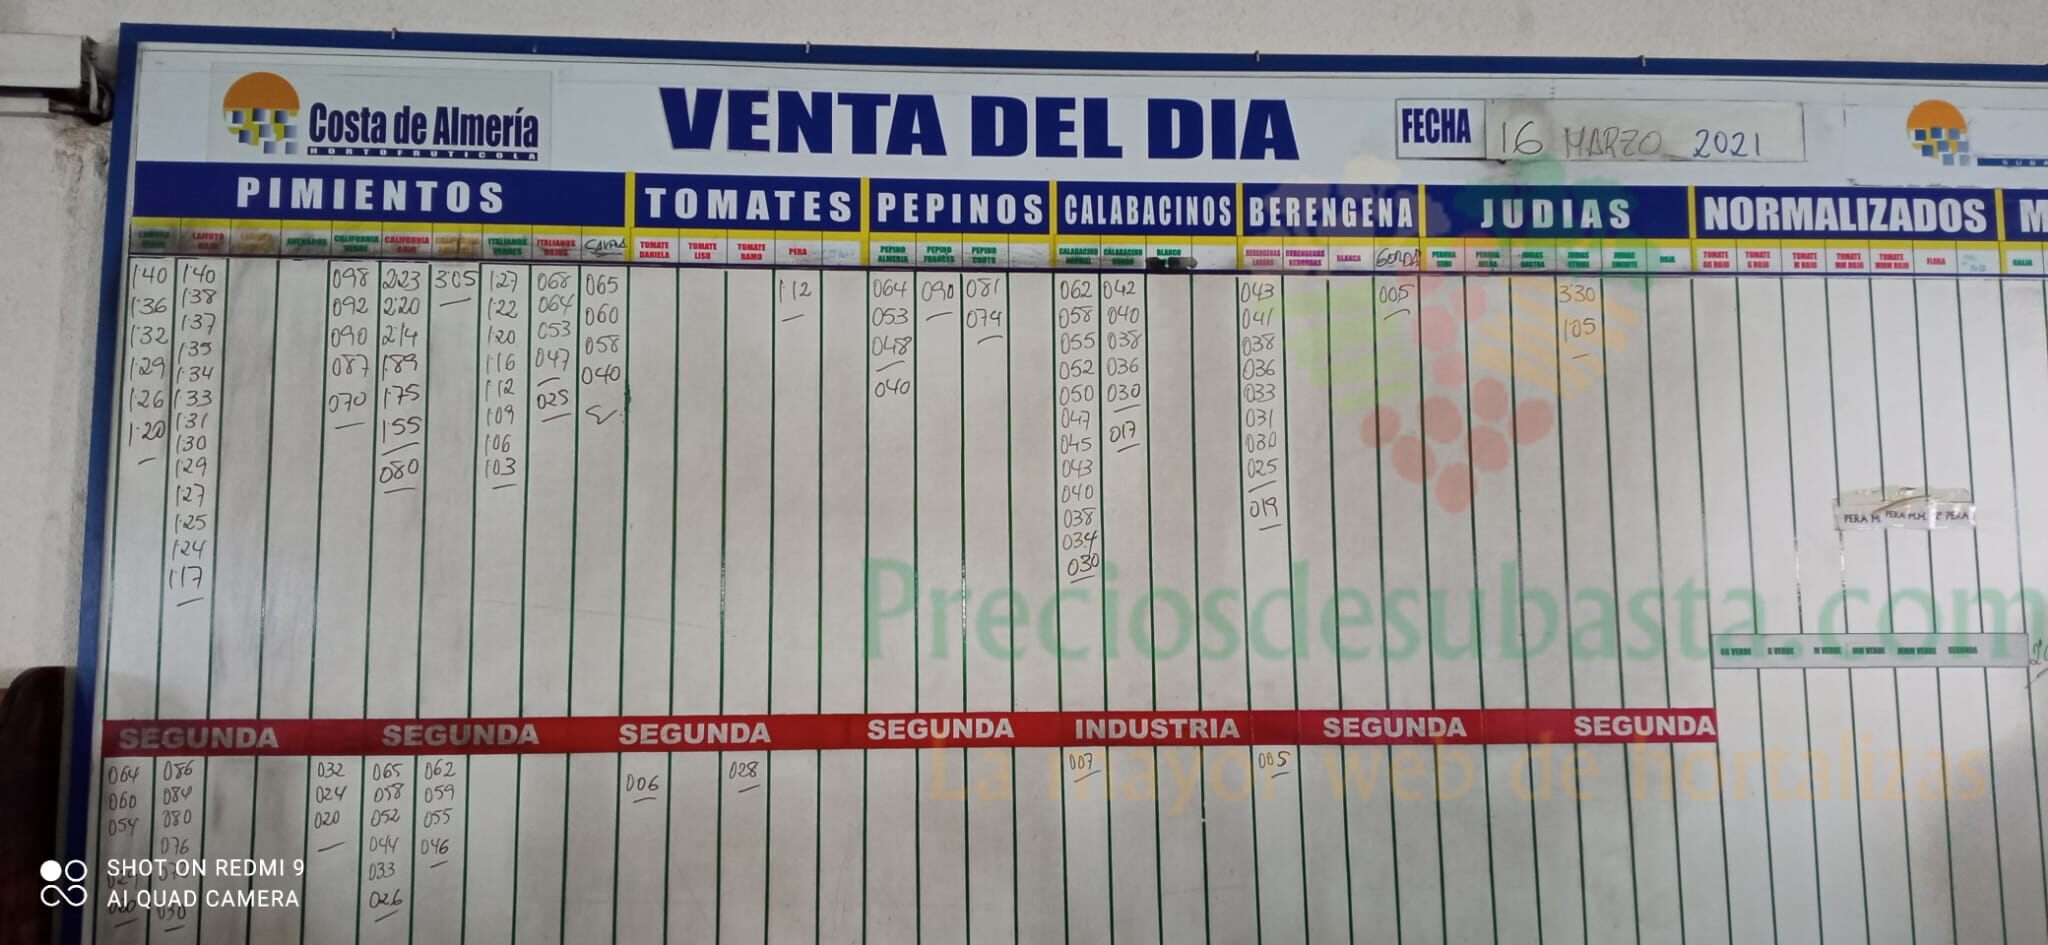 Costa de Almería
HORTOFRUTICOLA
VENTA DEL DIA
FECHA 16 MARZO 2021
PIMIENTOS TOMATES PEPINOS CALABACINOS BERENGENA JUDIAS NORMALIZADOS M
LAMUYO ROJO CALIFORNIA VERDE CALIFORNIA ROJO ITALIANOS VERDES ITALIANOS ROJOS TOMATE DANIELA TOMATE LISO TOMATE RAMO PERA PEPINO ALMERIA PEPINO FRANCES PEPINO CORTO BLANCO BERENGENAS LARGAS BERENGENAS REDONDAS BLANCA GORDA ROJA FLORA GALIA
1'40 1'40 098 2'23 3'05 1'27 068 065 1'12 064 090 081 062 042 043 005 3'30
1'36 1'38 092 2'20 1'22 064 060 053 074 058 040 041 1'05
1'32 1'37 090 2'14 1'20 053 058 048 055 038 038
1'29 1'35 087 1'89 1'16 047 040 040 052 036 036
1'26 1'34 070 1'75 1'12 025 050 030 033
1'20 1'33 1'55 1'09 047 017 031
1'31 080 1'06 045 030
1'30 1'03 043 025
1'29 040 019
1'27 038
1'25 034
1'24 030
1'17
PERA M. PERA M.M. 2ª PERA
Preciosdesubasta.com
GG VERDE G VERDE M VERDE MM VERDE MMM VERDE SEGUNDA
SEGUNDA SEGUNDA SEGUNDA SEGUNDA INDUSTRIA SEGUNDA SEGUNDA
La mayor web de hortalizas
064 086 032 065 062 006 028 007 005
060 084 024 058 059
054 080 020 052 055
076 044 046
033
026
SHOT ON REDMI 9
AI QUAD CAMERA